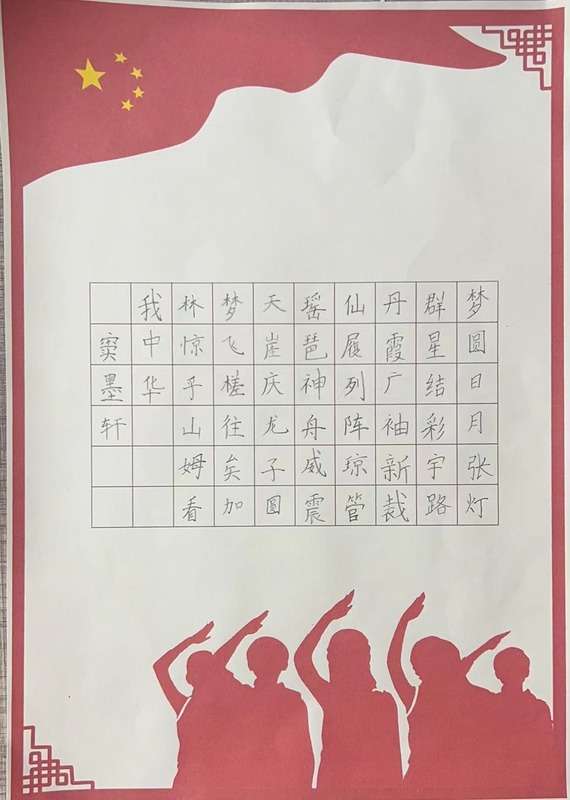 梦圆日月张灯
群星结彩宇路
丹霞广袖新裁
仙履列阵琼管
瑶琶神舟威震
天崖庆龙子圆
梦飞槎往矣加
林惊乎山姆看
我中华
窦墨轩